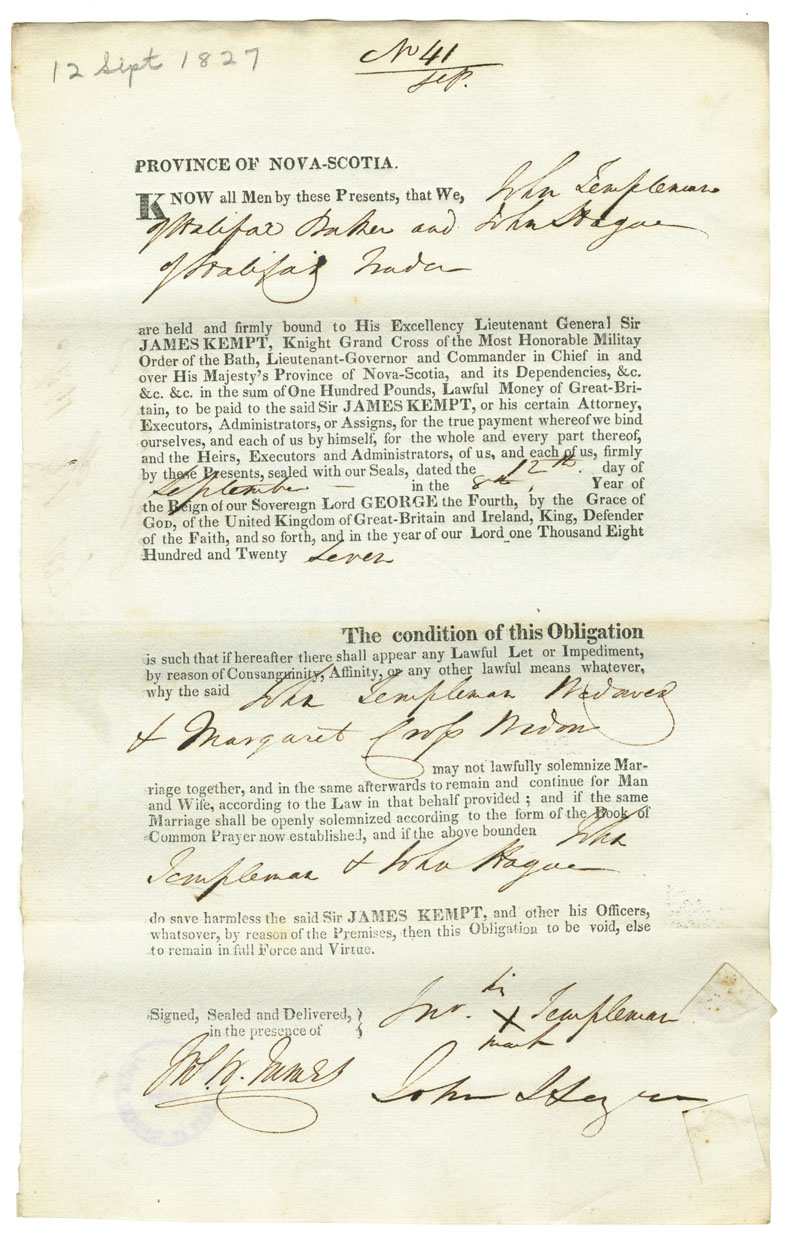 12 Sept 1827
No 41
Sep.
PROVINCE OF NOVA-SCOTIA.
KNOW all Men by these Presents, that We, John Templeman
of Halifax Baker and John Hague
of Halifax Trader
are held and firmly bound to His Excellency Lieutenant General Sir
JAMES KEMPT, Knight Grand Cross of the Most Honorable Militay
Order of the Bath, Lieutenant-Governor and Commander in Chief in and
over His Majesty's Province of Nova-Scotia, and its Dependencies, &c.
&c. &c. in the sum of One Hundred Pounds, Lawful Money of Great-Bri-
tain, to be paid to the said Sir JAMES KEMPT, or his certain Attorney,
Executors, Administrators, or Assigns, for the true payment whereof we bind
ourselves, and each of us by himself, for the whole and every part thereof,
and the Heirs, Executors and Administrators, of us, and each of us, firmly
by these Presents, sealed with our Seals, dated the 12th. day of
September – in the 8th, Year of
the Reign of our Sovereign Lord GEORGE the Fourth, by the Grace of
GOD, of the United Kingdom of Great-Britain and Ireland, King, Defender
of the Faith, and so forth, and in the year of our Lord one Thousand Eight
Hundred and Twenty Seven
The condition of this Obligation
is such that if hereafter there shall appear any Lawful Let or Impediment,
by reason of Consanguinity, Affinity, or any other lawful means whatever,
why the said John Templeman Widower
& Margaret Cross Widow
may not lawfully solemnize Mar-
riage together, and in the same afterwards to remain and continue for Man
and Wife, according to the Law in that behalf provided ; and if the same
Marriage shall be openly solemnized according to the form of the Book of
Common Prayer now established, and if the above bounden John
Templeman & John Hague
do save harmless the said Sir JAMES KEMPT, and other his Officers,
whatsover, by reason of the Premises, then this Obligation to be void, else
to remain in full Force and Virtue.
Signed, Sealed and Delivered,
in the presence of
his
Jno. X Templeman
mark
W. James
John Hague